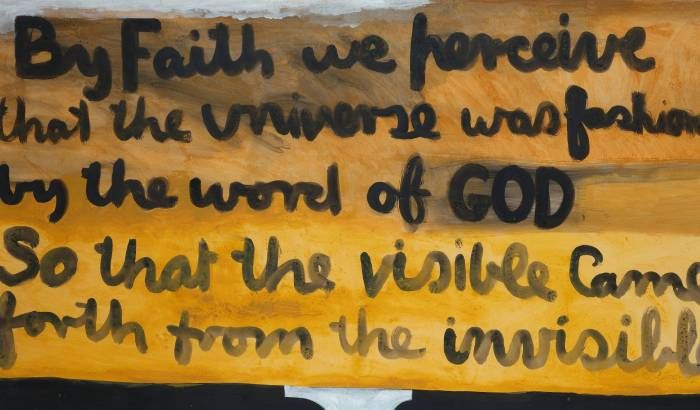 By Faith we perceive
that the universe was fashion
by the word of GOD
So that the visible Came
forth from the invisibl